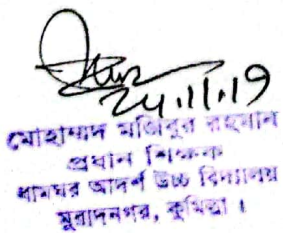 ২৮.১১.১৭
মোহাম্মদ মজিবুর রহমান
প্রধান শিক্ষক
ধামঘর আদর্শ উচ্চ বিদ্যালয়
মুরাদনগর, কুমিল্লা ।